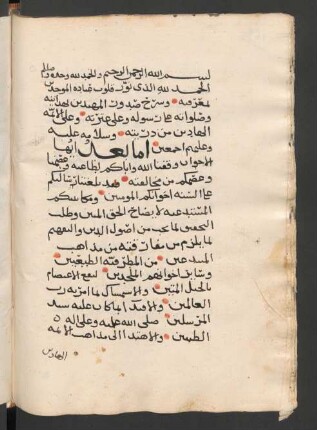 بسم الله الرحمن الرحيم والحمد لله وحده
الحمد لله الذي نور قلوب عباده الموحدين
بمعرفته وشرح صدور المهتدين
وصلواته على رسوله وعلى عترته وعلى الائمة
الهادين من ذريته وسلامه عليه
وعليهم اجمعين اما بعد ايها
الاخوان وفقنا الله واياكم لطاعته وعصمنا
وعصمكم من مخالفته فقد بلغتنا رسائلكم
على السنة اخوانكم المومنين
لايضاح الحق المبين وطلب
التحقيق لما يجب من اصول الدين والتفهم
لما يلزم من مفارقته من مذاهب
المبتدعين من المطرفية الطبيعيين
وساير اخوانهم الملحدين الاعتصام
بالحبل المتين والاستمساك بما امر به رب
العالمين والاقتدا بما كان عليه سيد
المرسلين صلى الله عليه وعلى اله
الطيبين والاهتدا الى مذاهب الائمة
الهادين